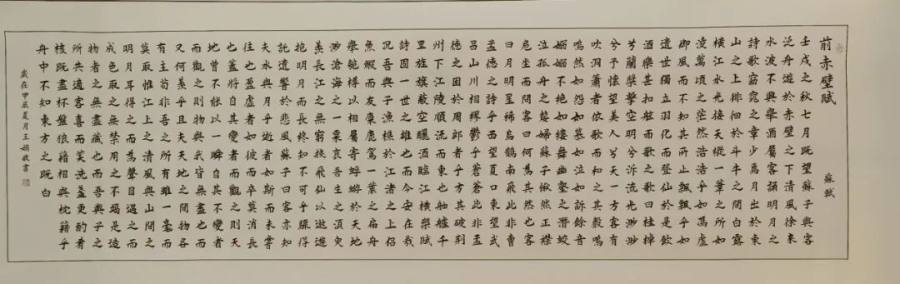 前赤壁賦
蘇軾
壬戌之秋七月既望蘇子與客
泛舟遊於赤壁之下清風徐來
水波不興舉酒屬客誦明月之
詩歌窈窕之章少焉月出於東
山之上徘徊於斗牛之間白露
橫江水光接天縱一葦之所如
凌萬頃之茫然浩浩乎如馮虛
御風而不知其所止飄飄乎如
遺世獨立羽化而登仙於是飲
酒樂甚扣舷而歌之歌曰桂棹
兮蘭槳擊空明兮泝流光渺渺
兮予懷望美人兮天一方客有
吹洞簫者依歌而和之其聲嗚
嗚然如怨如慕如泣如訴餘音
嫋嫋不絕如縷舞幽壑之潛蛟
泣孤舟之嫠婦蘇子愀然正襟
危坐而問客曰何為其然也客
曰月明星稀烏鵲南飛此非曹
孟德之詩乎西望夏口東望武
昌山川相繆鬱乎蒼蒼此非孟
德之困於周郎者乎方其破荊
州下江陵順流而東也舳艫千
里旌旗蔽空釃酒臨江橫槊賦
詩固一世之雄也而今安在哉
況吾與子漁樵於江渚之上侶
魚蝦而友麋鹿駕一葉之扁舟
舉匏樽以相屬寄蜉蝣於天地
渺滄海之一粟哀吾生之須臾
羨長江之無窮挾飛仙以遨遊
抱明月而長終知不可乎驟得
託遺響於悲風蘇子曰客亦知
夫水與月乎逝者如斯而未嘗
往也盈虛者如彼而卒莫消長
也蓋將自其變者而觀之則天
地曾不能以一瞬自其不變者
而觀之則物與我皆無盡也而
又何羨乎且夫天地之間物各
有主苟非吾之所有雖一毫而
莫取惟江上之清風與山間之
明月耳得之而為聲目遇之而
成色取之無禁用之不竭是造
物者之無盡藏也而吾與子之
所共適客喜而笑洗盞更酌肴
核既盡杯盤狼藉相與枕藉乎
舟中不知東方之既白
歲在甲辰夏月王敬書